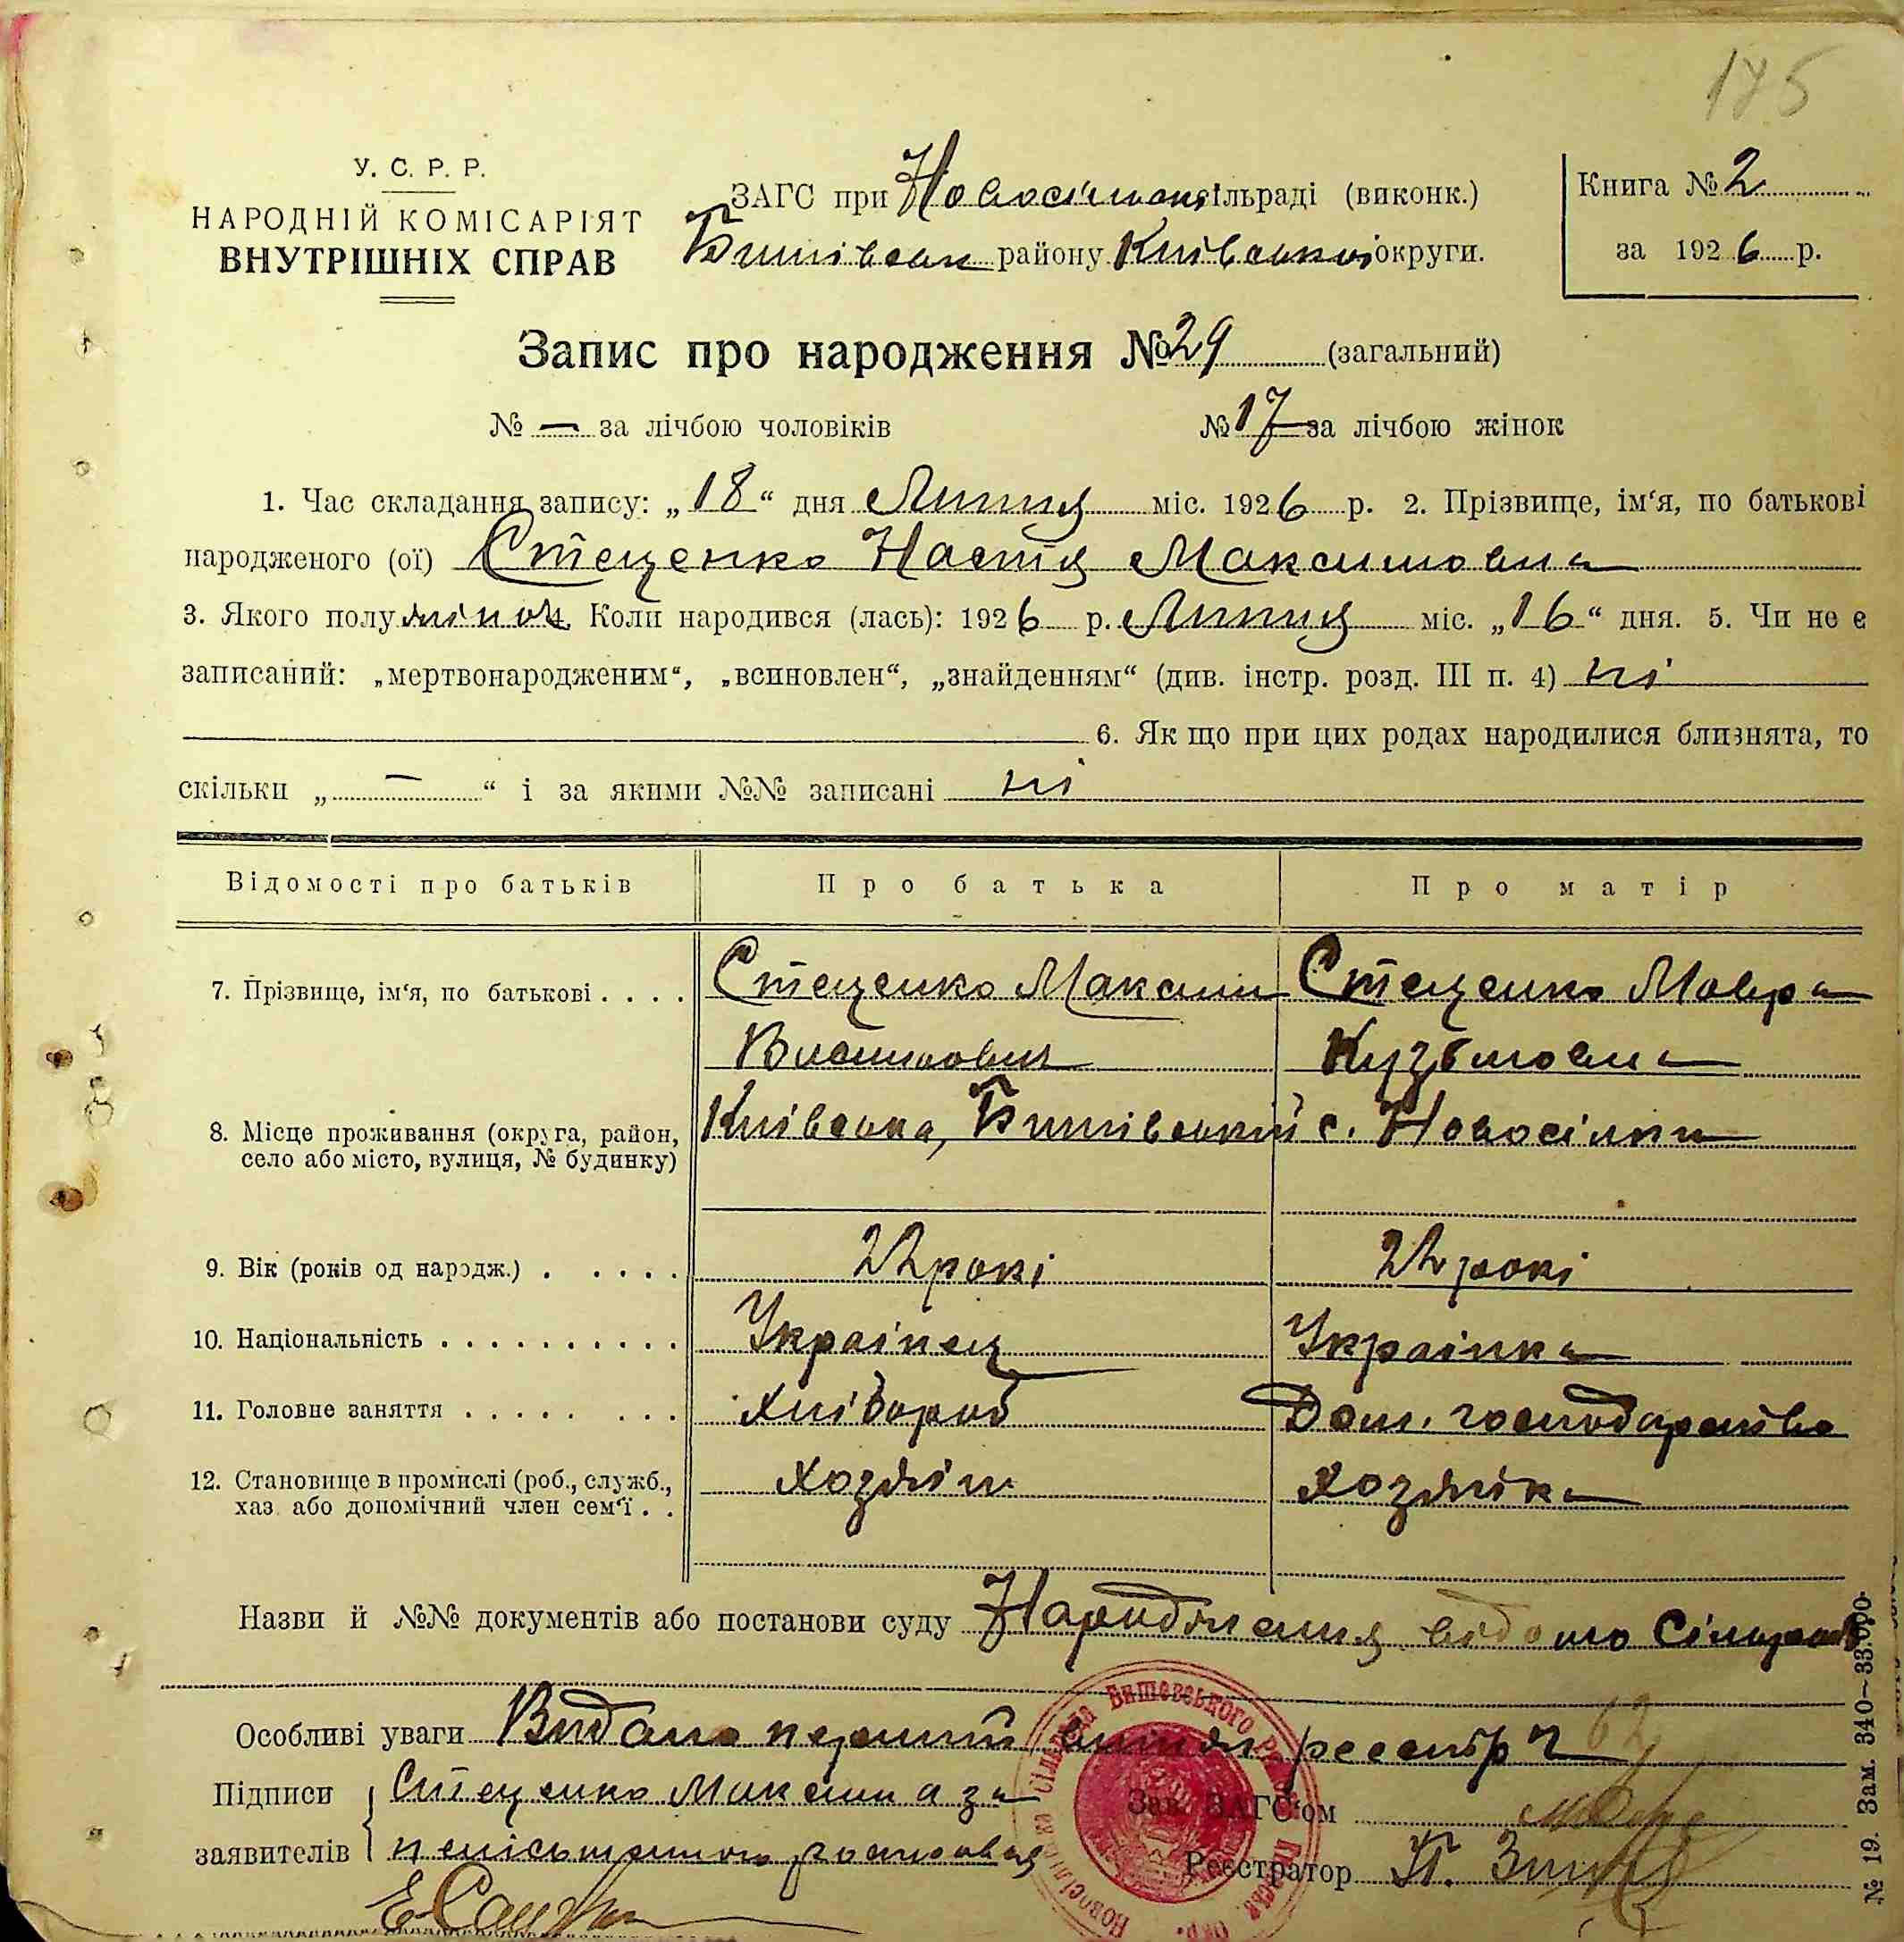 175
У. С. Р. Р.
НАРОДНІЙ КОМІСАРІЯТ
ВНУТРІШНІХ СПРАВ
ЗАГС при Новосілки сільраді (виконк.)
Бишівськ району Київської округи.
Книга № 2
за 1926 р.
Запис про народження № 29 (загальний)
№ — за лічбою чоловіків № 17 за лічбою жінок
1. Час складання запису: „18“ дня Липня міс. 1926 р. 2. Прізвище, ім‘я, по батькові
народженого (ої) Стеценко Настя Максимовна
3. Якого полу жіноч. 4. Коли народився (лась): 1926 р. Липня міс. „16“ дня. 5. Чи не є
записаний: „мертвонародженим“, „всиновлен“, „знайденням“ (див. інстр. розд. III п. 4) ні
6. Як що при цих родах народилися близнята, то
скільки „—“ і за якими №№ записані ні
Відомості про батьків Про батька Про матір
7. Прізвище, ім‘я, по батькові . . . . Стеценко Максим Стеценко Мавра
Кузьмовна
8. Місце проживання (округа, район, Київська, Бишівський с. Новосілки
село або місто, вулиця, № будинку)
9. Вік (років од народж.) . . . . . 22 рокі 22 рокі
10. Національність . . . . . . . . . . Українец Українка
11. Головне заняття . . . . . . . . Хлібороб Дом. господарство
12. Становище в промислі (роб., служб., Хозяїн Хозяїка
хаз. або допомічний член сем‘ї . .
Назви й №№ документів або постанови суду Народження відомо Сільраді
Особливі уваги Видано перший реєстр 62
Підписи Стеценко Максим а за
заявителів неписьменного росписався
Зав. ЗАГС‘ом
Реєстратор П.
№ 19. Зам. 340—33.000